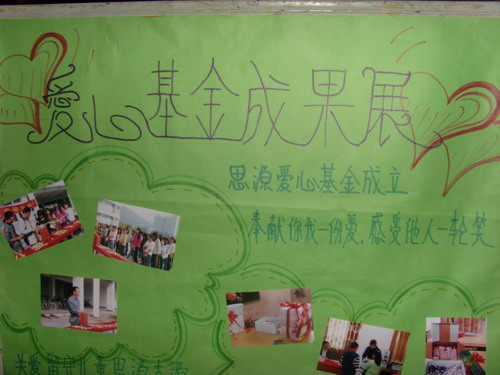 爱心基金成果展
思源爱心基金成立
奉献你我一份爱,感受他人一轮笑
关爱留守儿童思源走过